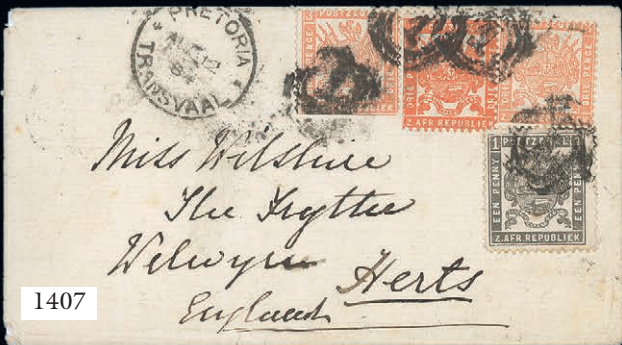 PRETORIA
TRANSVAAL
DRIE PENCE
Z. AFR. REPUBLIEK
1
EEN PENNY
EEN PENNY
Z. AFR. REPUBLIEK
Miss Wilshire
The Frythe
Welwyn
Herts
England
1407